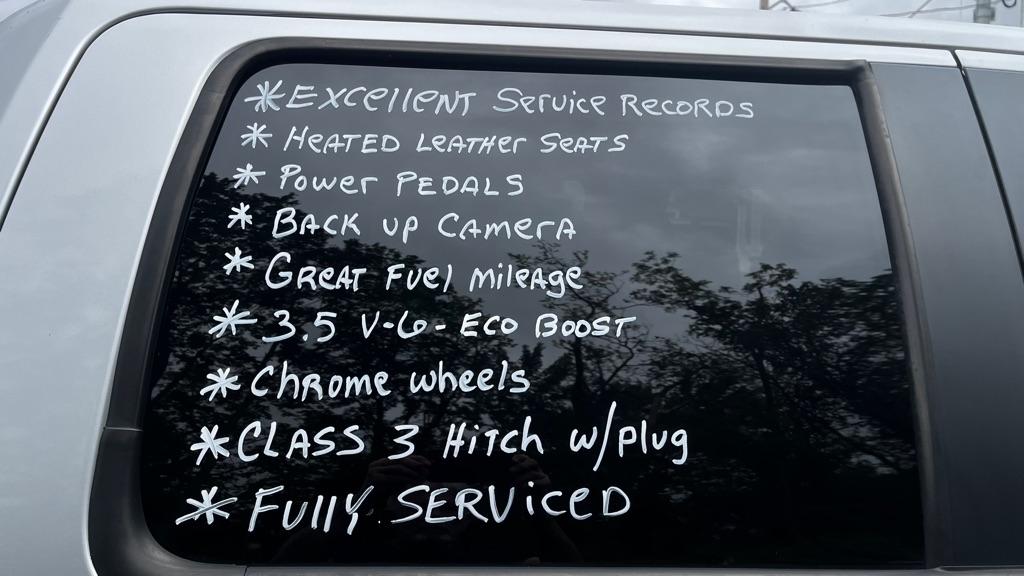 *EXCellENT Service RECORDS
* HEATED LEATHer SEATS
* Power PEDALS
* BACK up CAMerA
* GREAT Fuel mileAge
* 3.5 V-6- Eco BOOST
* ChRome wheels
*CLASS 3 HiTch w/plug
* Fully SERViceD